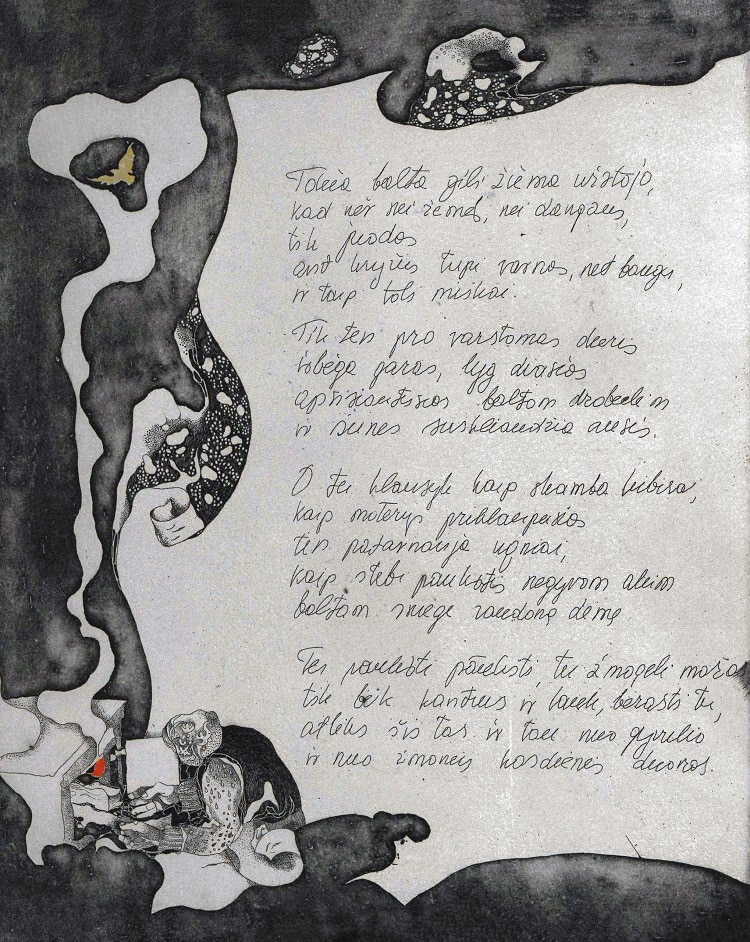 Tokia balta gili žiema užstojo,
kad nėr nei žemės, nei dangaus,
tik juodos
ant kryžių tupi varnos, net baugu,
ir taip toli miškai.
Tik ten pro varstomas duris
išbėga garas, lyg dvasios
apsisiautusios baltom drobulėm
ir šunes susiglaudžia ausis.
O tu klausyk kaip skamba
kaip moterys priklaupusios
ten patarnauja ugniai,
kaip stebi paukštis negyvom akim
baltam sniege raudoną dėmę
Tu paukšti paukšti, tu žmogeli mažas
tik būk kantrus ir lauk, berasi tu,
atliks šis tas ir tau nuo gyvulio
ir nuo žmonių kasdienės duonos.